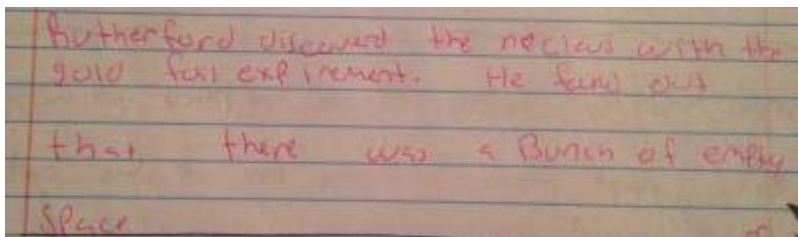 Rutherford discoverd the necleus with the
gold foil expirement. He fand out
that there was a Bunch of empty
space